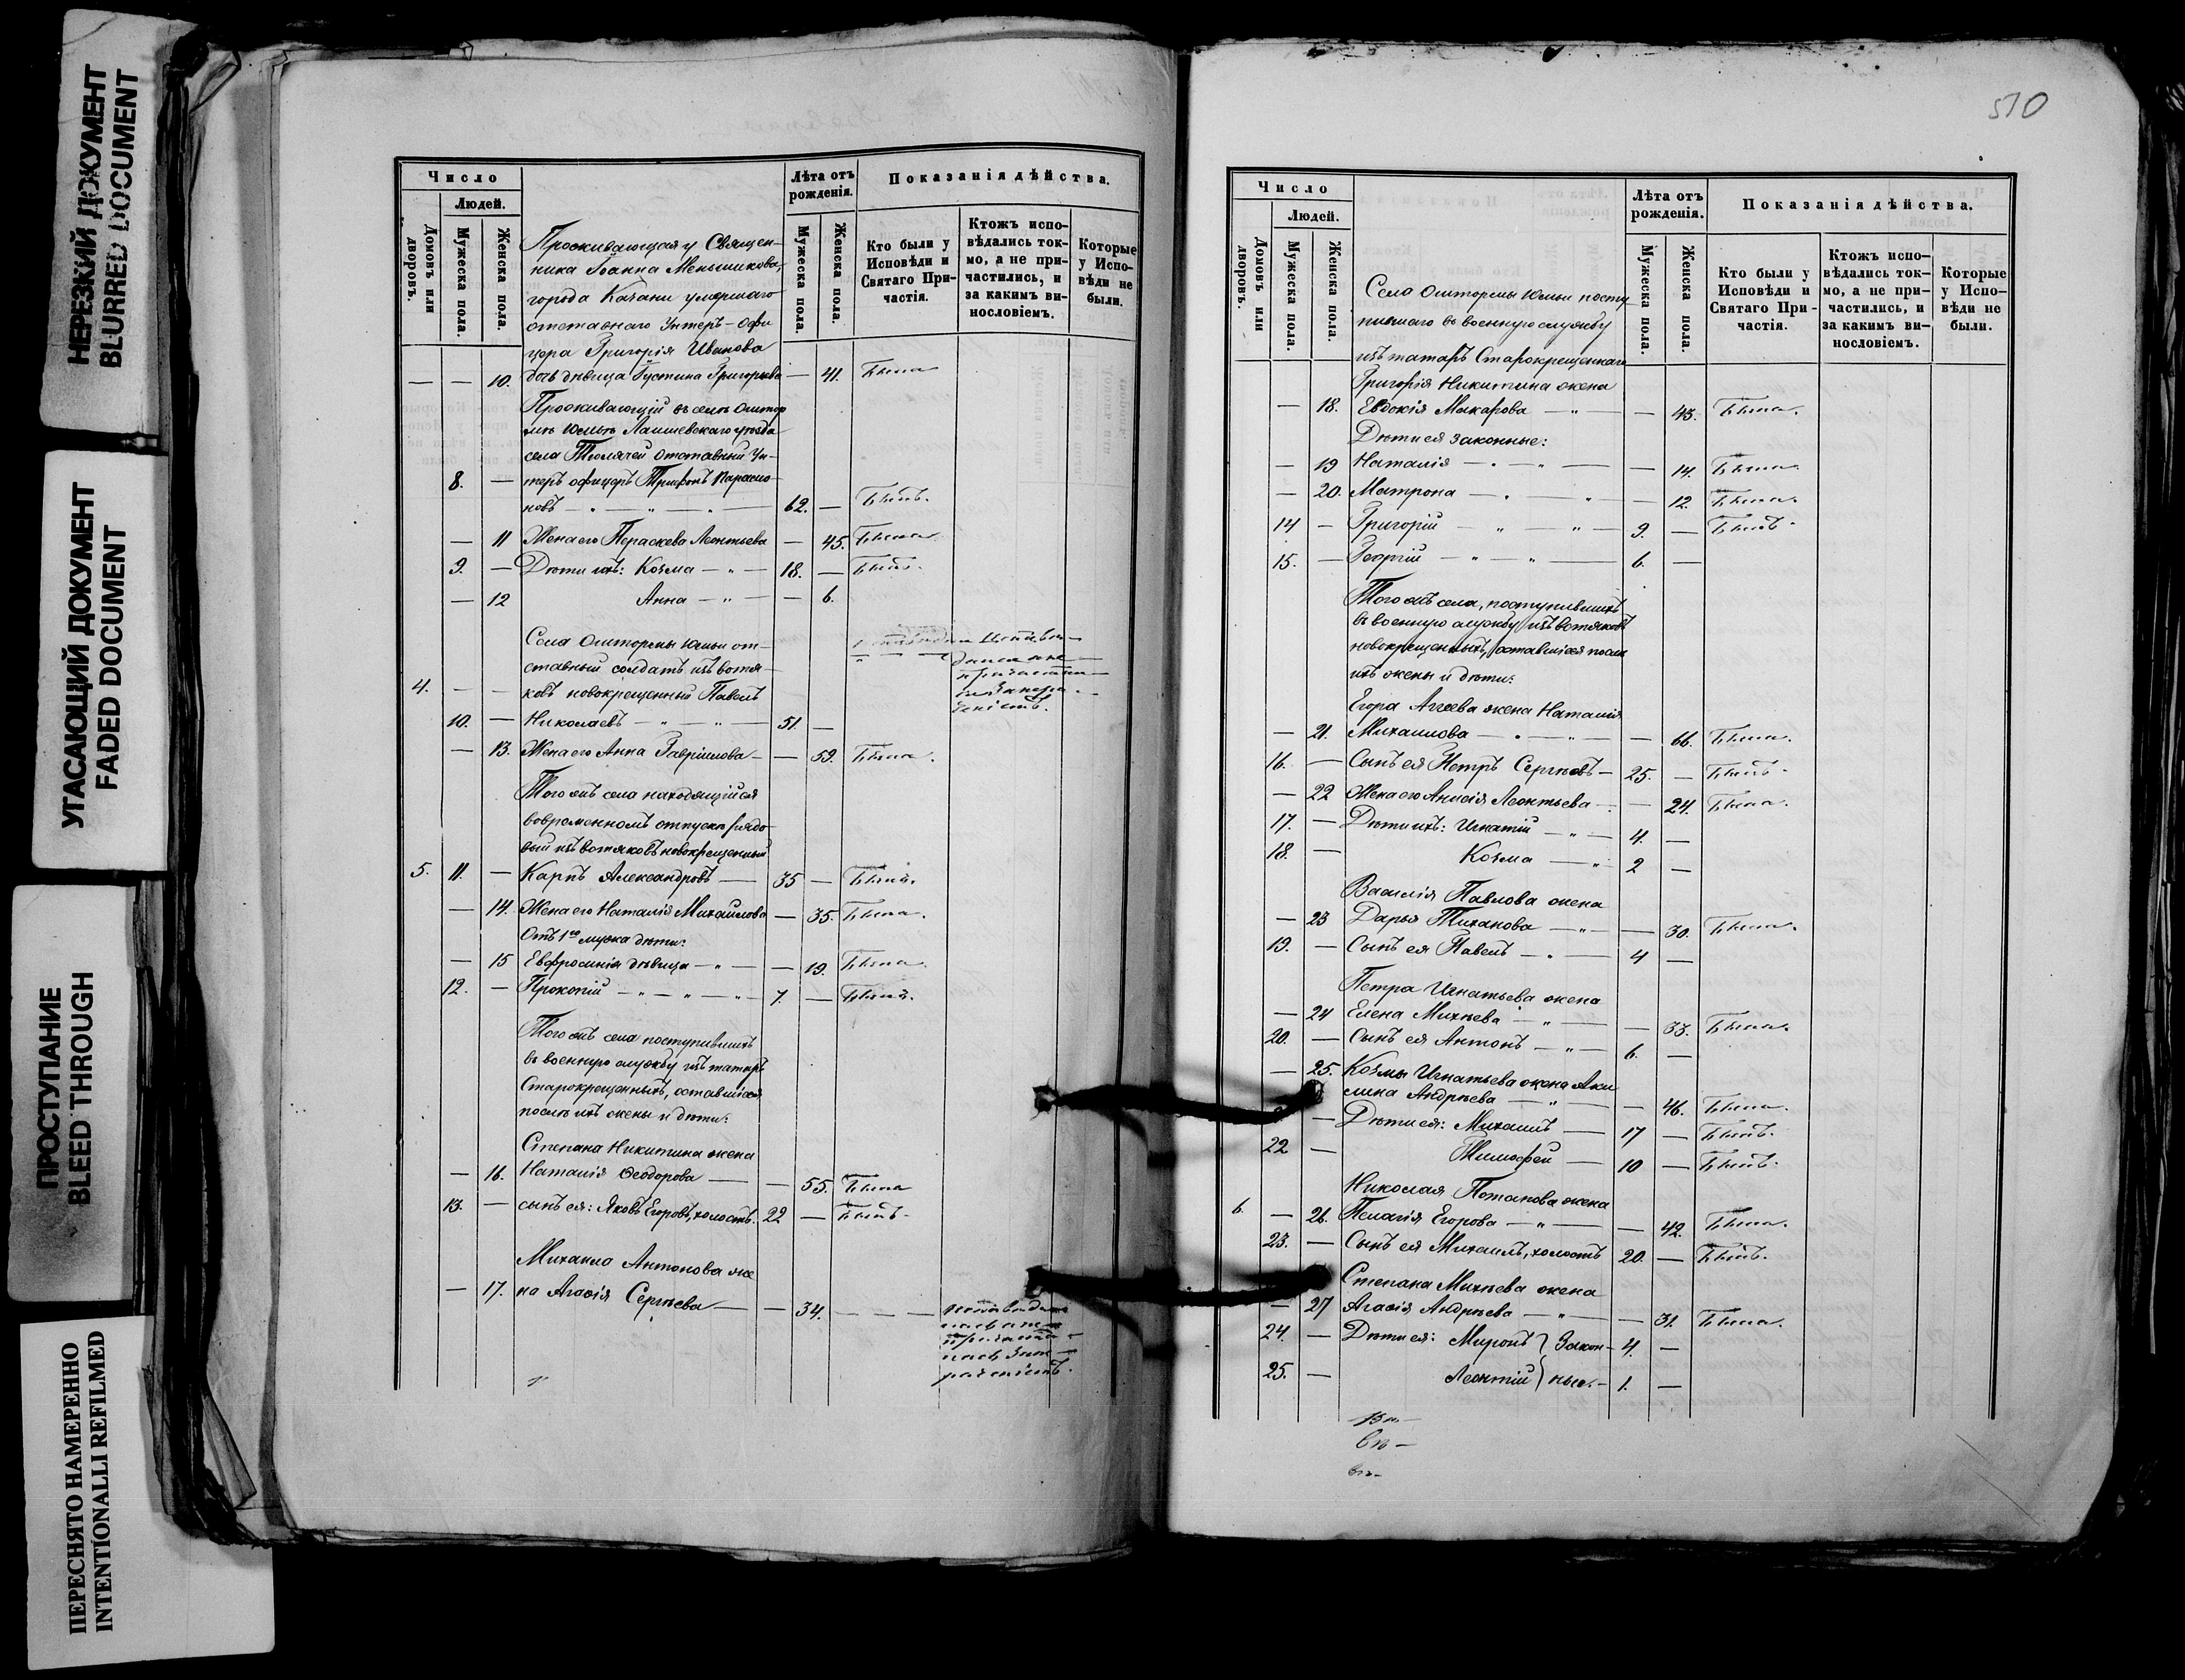 НЕРЕЗКИЙ ДОКУМЕНТ
BLURRED DOCUMENT
УГАСАЮЩИЙ ДОКУМЕНТ
FADED DOCUMENT
ПРОСТУПАНИЕ
BLEED THROUGH
ПЕРЕСНЯТО НАМЕРЕННО
INTENTIONALLI REFILMED
Число
Людей.
Домовъ или дворовъ.
Мужеска пола.
Женска пола.
Лѣта отъ рожденія.
Мужеска пола.
Женска пола.
Показанія дѣйства.
Кто были у Исповѣди и Святаго Причастія.
Ктожъ исповѣдались токмо, а не причастились, и за какимъ винословіемъ.
Которые у Исповѣди не были.
Проживающая у Священ-
ника Іоанна Меньшикова,
города Казани умершаго
отставнаго Унтеръ-Офи
цера Григорія Иванова
— — 10. дочь дѣвица Іустина Григорьева — 41. Была
Проживающій въ селѣ Ошторм
Юмьѣ Лаишевскаго уѣзда
села Тюлячей отставный Ун-
8. — теръ офицеръ Трифонъ
новъ — „ — „ — „ — 62. — Былъ.
— 11 Жена его Параскева Леонтьева — 45. Была
9. — Дѣти ихъ: Козма — „ — 18. — Былъ.
— 12 Анна — „ — — 6.
Села Оштормы Юмьи от-
ставный солдатъ изъ вотя-
4. — — ковъ новокрещенный Павелъ
10. — Николаевъ — „ — „ — 51. —
— 13. Жена его Анна Гавріилова — — 59. Была.
Того жъ села находящійся
во временномъ отпуску рядо-
вый изъ вотяковъ новокрещенный
5. 11. — Карпъ Александровъ — 35 — Былъ.
— 14. Жена его Наталія Михайлова — 35. Была.
Отъ 1го мужа дѣти:
— 15 Евфросинія дѣвица — „ — — 19. Была.
12. — Прокопій — „ — „ — „ — 7. — Былъ.
Того жъ села поступившихъ
въ военную службу изъ татаръ
Старокрещенныхъ, оставшіяся
послѣ ихъ жены и дѣти:
Степана Никитина жена
— 16. Наталія Ѳеодорова — — 55. Была
13. — сынъ ея: Яковъ Егоровъ, холостъ. 22 — Былъ.
Михаила Антонова же
— 17. на Агаѳія Сергѣева — — 34. — — —
510
Число
Людей.
Домовъ или дворовъ.
Мужеска пола.
Женска пола.
Лѣта отъ рожденія.
Мужеска пола.
Женска пола.
Показанія дѣйства.
Кто были у Исповѣди и Святаго Причастія.
Ктожъ исповѣдались токмо, а не причастились, и за какимъ винословіемъ.
Которые у Исповѣди не были.
Села Оштормы Юмьи посту
пившаго въ военную службу
изъ татаръ Старокрещенаго
Григорія Никитина жена
— 18. Евдокія Макарова — „ — — 43. Была.
Дѣти ея законные:
— 19 Наталія — „ — „ — — 14. Была.
— 20. Матрона — „ — „ — — 12. Была.
14 — Григорій — „ — „ — 9. — Былъ.
15. — Георгій — „ — „ — 6. —
Того жъ села, поступившихъ
въ военную службу изъ вотяковъ
новокрещенныхъ, оставшіяся послѣ
ихъ жены и дѣти:
Егора Агѣева жена Наталія
— 21. Михаилова — „ — „ — — 66. Была.
16. — Сынъ ея Петръ Сергѣевъ — 25. — Былъ.
— 22 Жена его Анисія Леонтьева — — 24. Была.
17. — Дѣти ихъ: Игнатій — „ — 4. —
18. — Козма — „ 2 —
Василія Павлова жена
— 23 Дарья Тиханова — „ — — 30. Была.
19. — Сынъ ея Павелъ — „ — 4 —
Петра Игнатьева жена
— 24 Елена Михѣева — „ — — 33. Была.
20. — Сынъ ея Антонъ — „ — 6. —
— 25. Козмы Игнатьева жена Аки
лина Андрѣева — „ — — 46. Была.
— Дѣти ея: Михаилъ — 17 — Былъ.
22 — Тимофей — 10 — Былъ.
Николая Потапова жена
6. — 26. Пелагія Егорова — „ — — 42. Была.
23. — Сынъ ея Михаилъ, холостъ 20. — Былъ.
Степана Михѣева жена
— 27 Агаѳія Андрѣева — „ — — 31. Была.
24. — Дѣти ея: Миронъ } Закон- 4. —
25. — Леонтій } ные. — 1. —